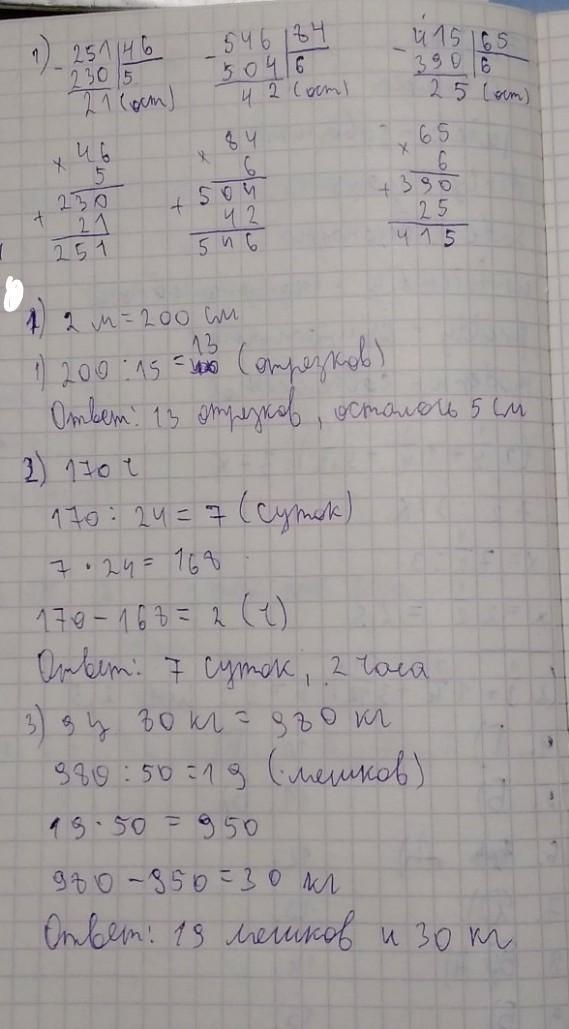 1) - 251 | 46 - 546 | 84 - 415 | 65
230 | 5 504 | 6 390 | 6
21 (ост) 42 (ост) 25 (ост)
× 46 × 84 × 65
5 6 6
+ 230 + 504 + 390
21 42 25
251 546 415
1) 2 м = 200 см
1) 200 : 15 = 13 (отрезков)
Ответ: 13 отрезков, осталось 5 см
2) 170 ч
170 : 24 = 7 (суток)
7 · 24 = 168
170 - 168 = 2 (ч)
Ответ: 7 суток, 2 часа
3) 9 ц 80 кг = 980 кг
980 : 50 = 19 (мешков)
19 · 50 = 950
980 - 950 = 30 кг
Ответ: 19 мешков и 30 кг